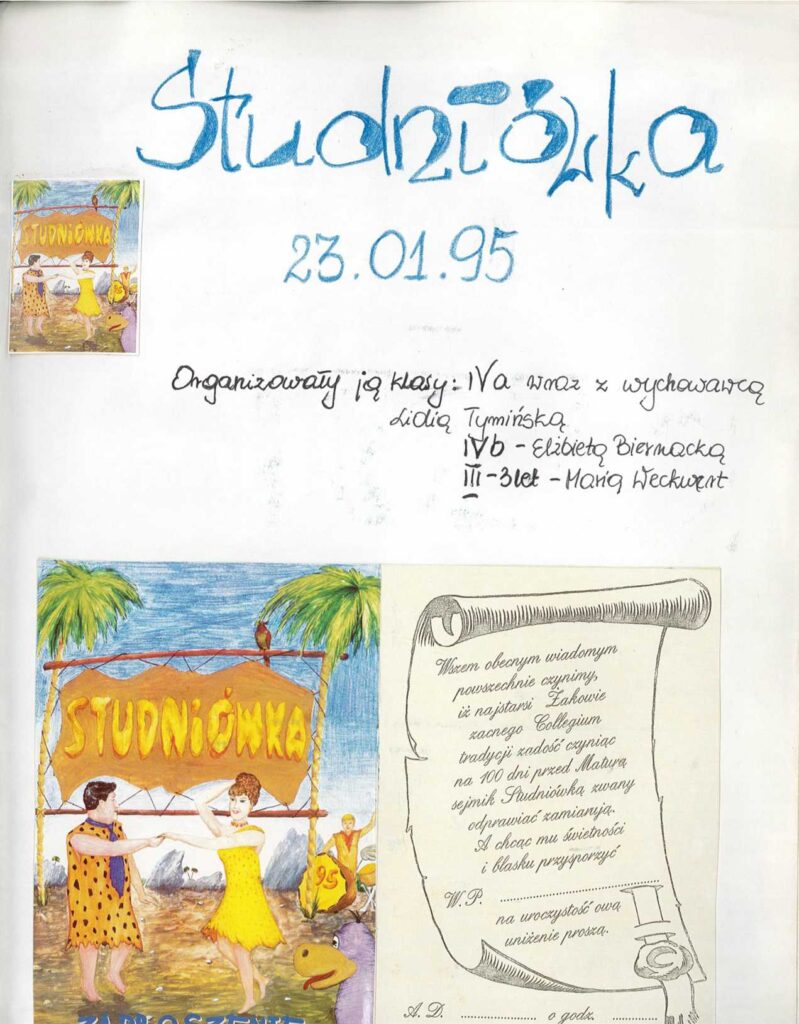 Studniówka
STUDNIÓWKA
23.01.95
Organizowały ją klasy: IVa wraz z wychowawcą
Lidią Tymińską
IVb - Elżbietą Biernacką
III-3let - Marią Weckwert
STUDNIÓWKA
95
ZAPROSZENIE
Wszem obecnym wiadomym
powszechnie czynimy,
iż najstarsi Żakowie
zacnego Collegium
tradycji zadość czyniąc
na 100 dni przed Maturą
sejmik Studniówką zwany
odprawiać zamianują.
A chcąc mu świetności
i blasku przysporzyć
W.P. ........................
na uroczystość ową
uniżenie proszą.
A.D. .................. o godz. ..........